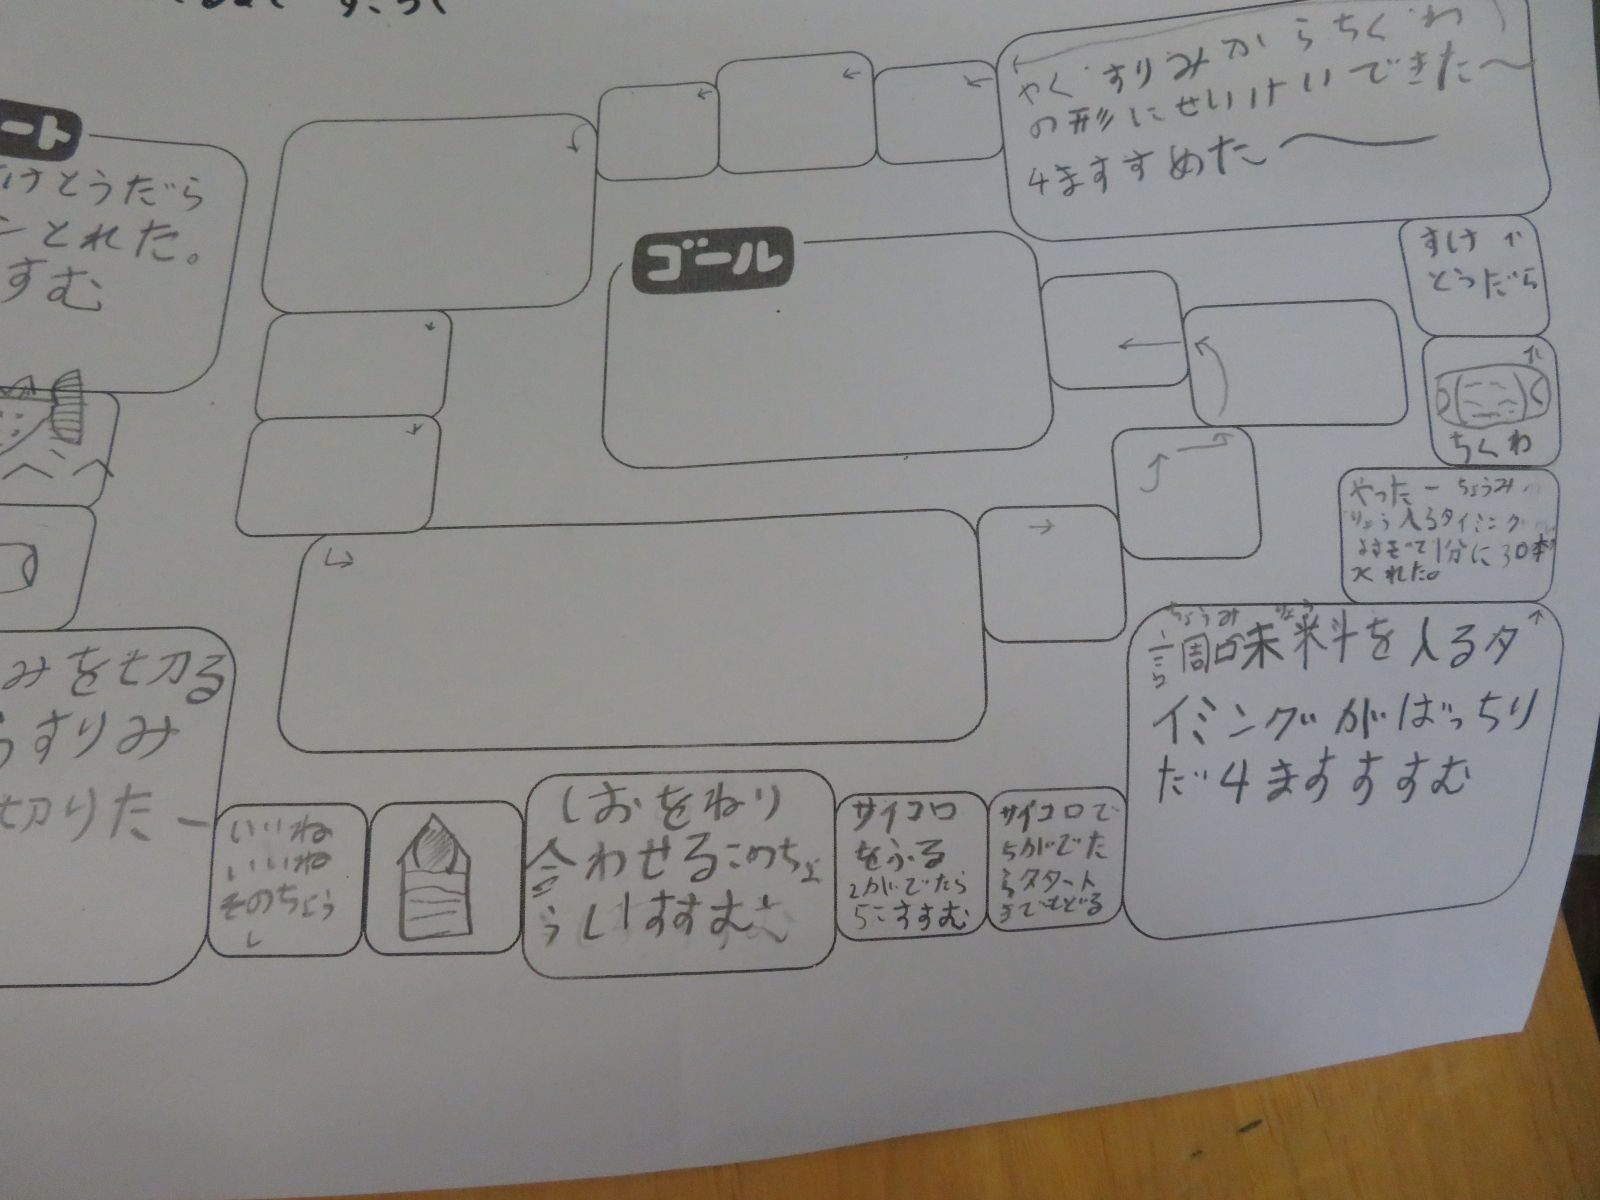 ート
けとうだら
とれた。
すむ
みを切る
うすりみ
切りたー
いいね
いいね
そのちょう
し
しおをねり
合わせるこのちょ
うしすすむ
サイコロ
をふる
2がでたら
5こすすむ
サイコロで
5がでた
らスタート
までもどる
調味料を入るタ
ちょうみ りょう
イミングがばっちり
だ4ますすすむ
やったーちょうみ
りょう入るタイミング
1分に30本
くれた。
ちくわ
すけ
とうだら
やく すりみからちくわ
の形にせいけいできた〜
4ますすすめた〜
ゴール